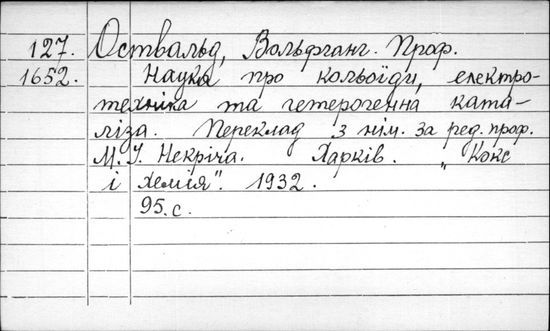 127. Оствальд, Вольфганг. Проф.
1652. Наука про кольоїди, електро-
техніка та гетерогенна ката-
ліза. Переклад з нім. за ред. проф.
М. І. Некріча. Харків. „Кокс
і хемія". 1932.
95. с.